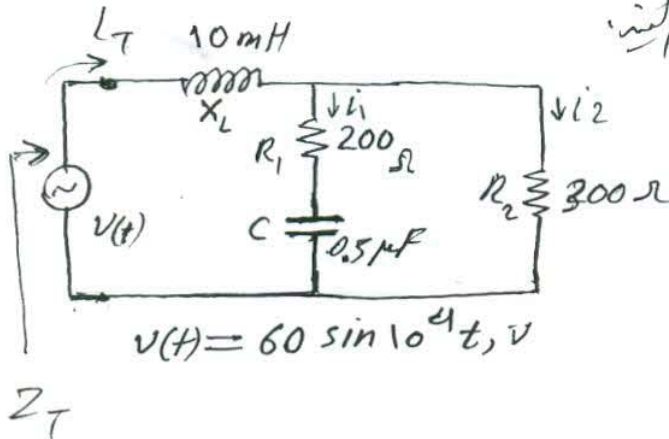 i_T
10 mH
X_L
↓i_1
↓i_2
R_1
200 Ω
R_2
300 Ω
V(t)
C
0.5 μF
v(t) = 60 sin 10^4 t, v
Z_T